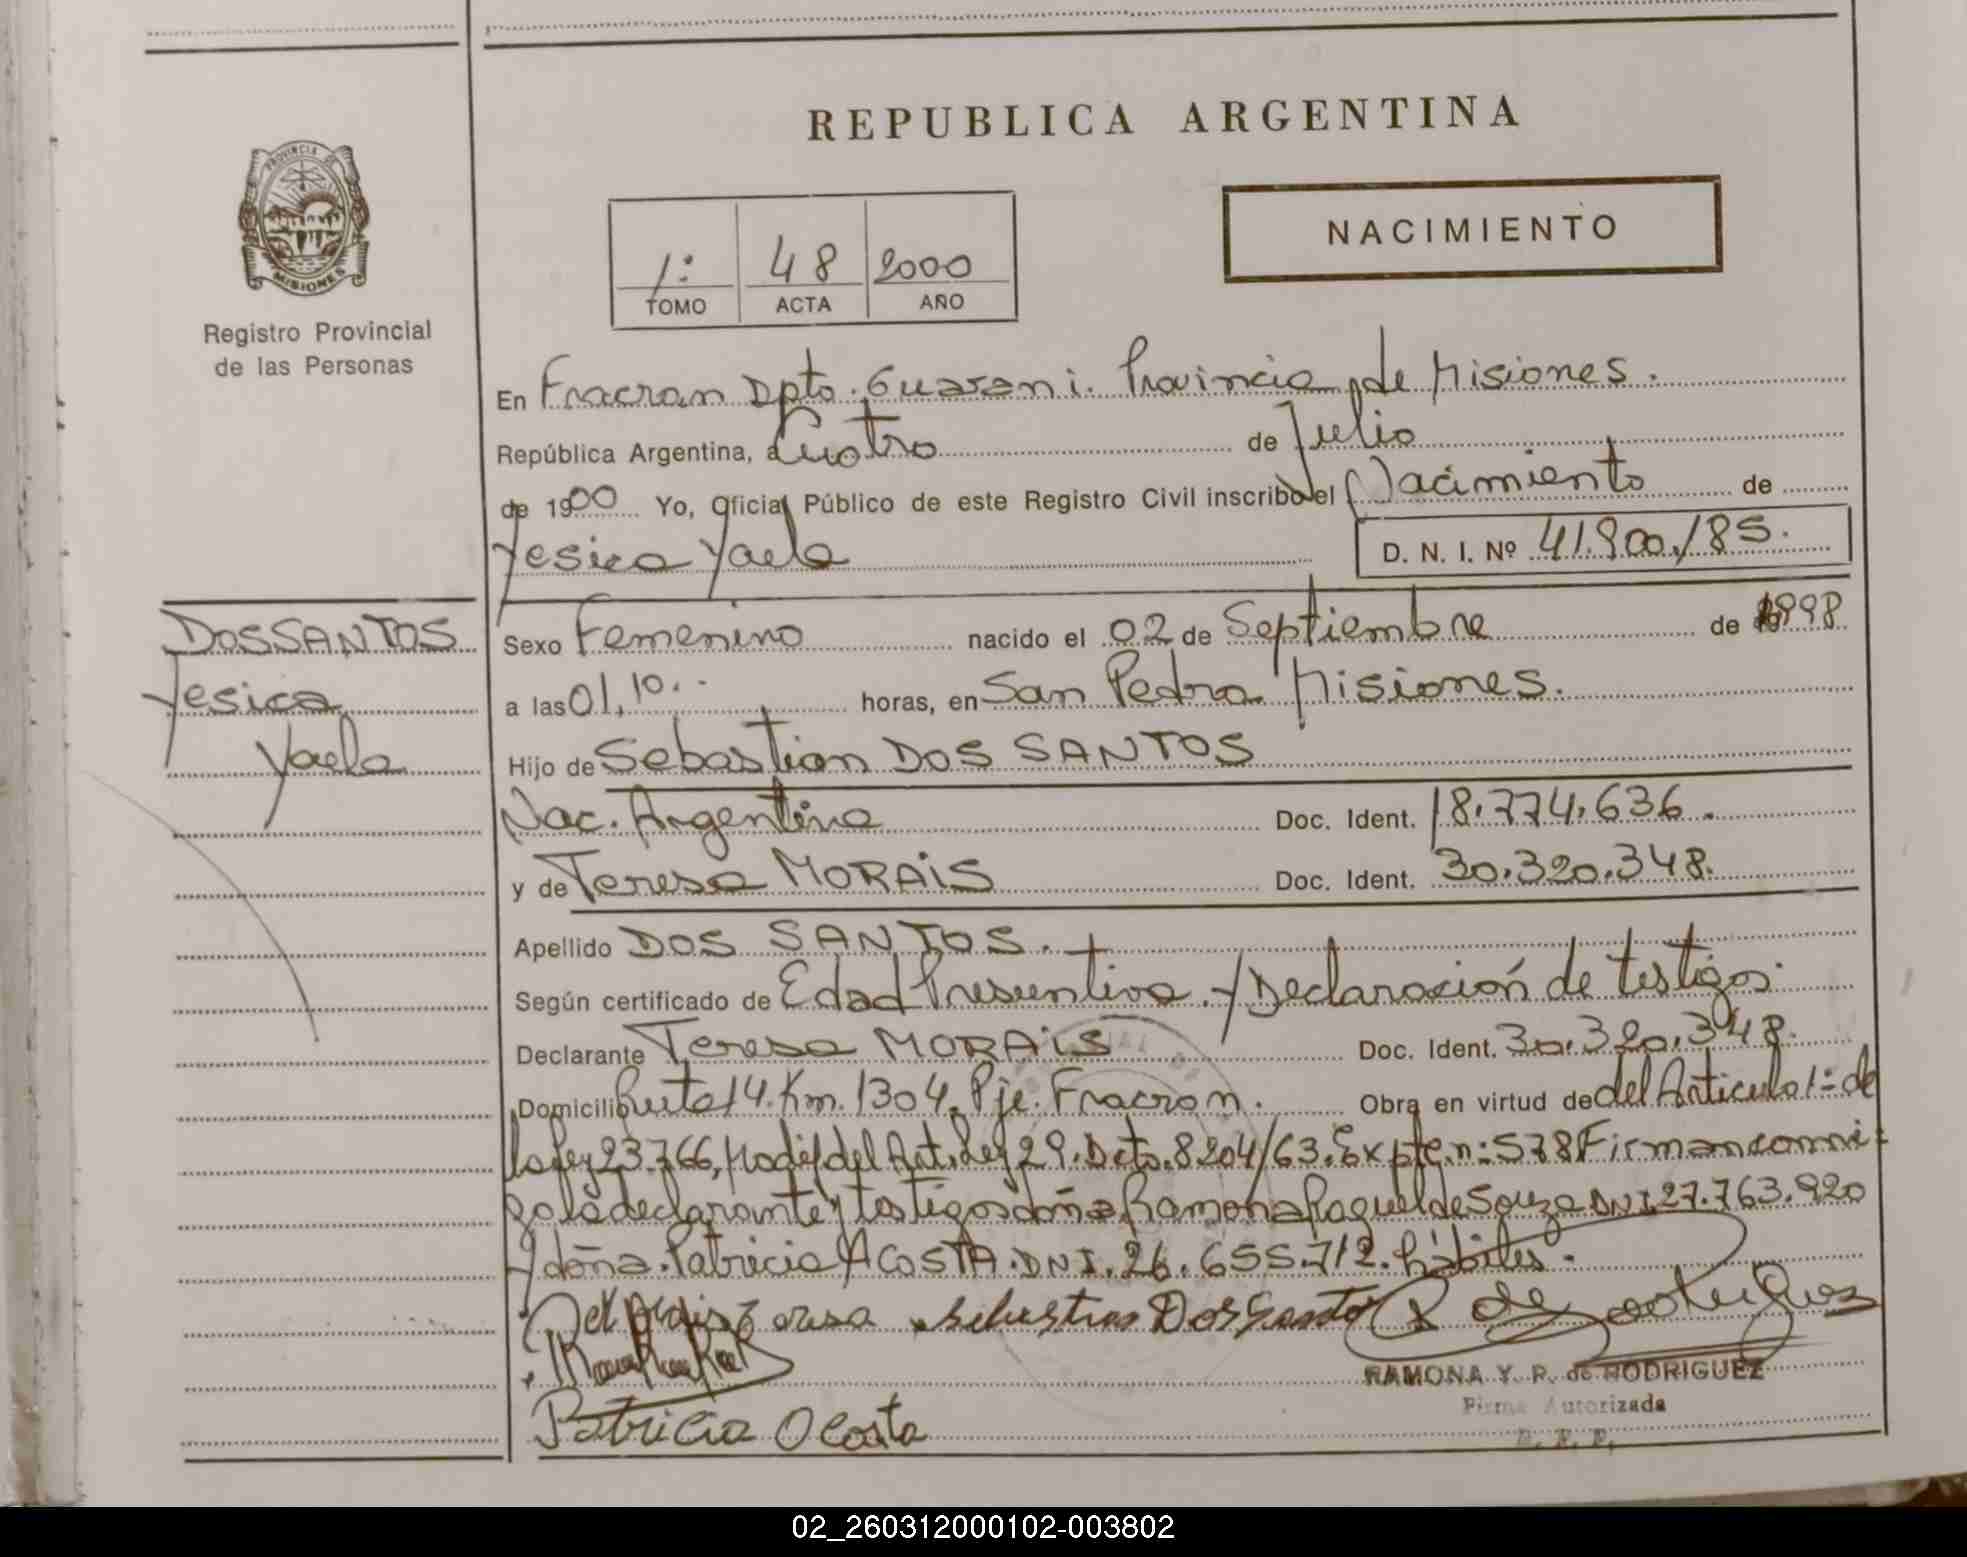 REPUBLICA ARGENTINA
PROVINCIA DE
MISIONES
Registro Provincial
de las Personas
1: 48 2000
TOMO ACTA AÑO
NACIMIENTO
En Fracran Dpto. Guarani. Provincia de Misiones.
República Argentina, a Cuatro de Julio
de 1900 Yo, Oficial Público de este Registro Civil inscribo el Nacimiento de
Yesica Yaela D. N. I. Nº 41.900.185.
DOS SANTOS
Yesica
Yaela
Sexo Femenino nacido el 02 de Septiembre de 1998
a las 01,10.- horas, en San Pedro Misiones.
Hijo de Sebastian DOS SANTOS
Nac. Argentina Doc. Ident. 18.774.636.
y de Teresa MORAIS Doc. Ident. 30.320.348.
Apellido DOS SANTOS.
Según certificado de Edad Presuntiva. y Declaración de testigos.
Declarante Teresa MORAIS Doc. Ident. 30.320.348.
Domicilio Ruta 14. Km. 1304. Pje. Fracran. Obra en virtud de del Articulo 1= de
la Ley 23.766, Modif del Art. Ley 29. Dcto. 8204/63. Expte. n: 578 Firman conmi=
go la declarante y testigos doña Ramona Raquel de Souza DNI. 27.763.920
y doña. Patricia ACOSTA. DNI. 26.655.712. hábiles.
Sebastian Dos Santo
RAMONA Y. R. de RODRIGUEZ
Firma Autorizada
Patricia Acosta
02_260312000102-003802